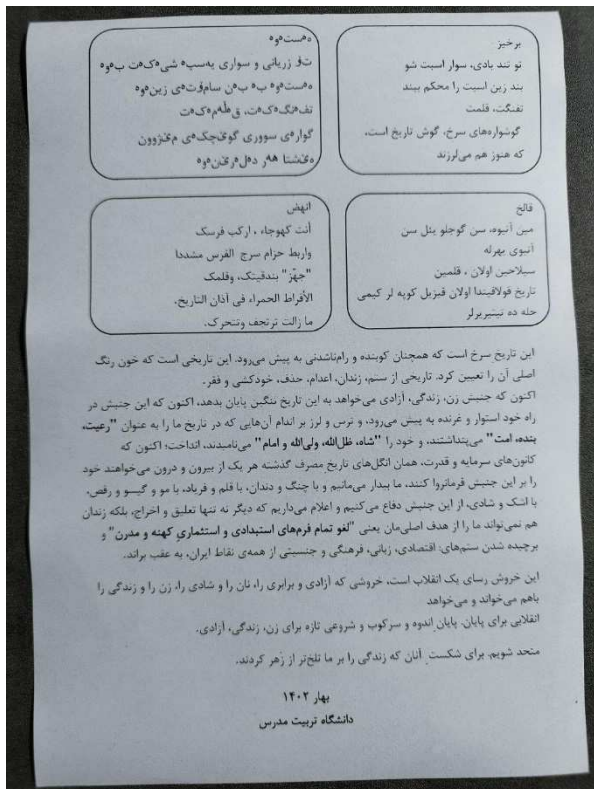 برخیز
تو تند بادی، سوار اسبت شو
بند زین اسبت را محکم ببند
تفنگت، قلمت
گوشواره‌های سرخ، گوش تاریخ است،
که هنوز هم می‌لرزند
قالخ
سن گوجلو یئل سن
آتیوی یهرله
سیلاحین اولان ، قلمین
تاریخ قولاقیندا اولان قیزیل کوپه لر کیمی
حله ده تیتیریرلر
انهض
أنت کهوجاء ، ارکب فرسک
واربط حزام سرج الفرس مشددا
"جهّز" بندقیتک، وقلمک
الأقراط الحمراء فی آذان التاریخ،
ما زالت ترتجف وتتحرک.
این تاریخ سرخ است که همچنان کوبنده و رام‌ناشدنی به پیش می‌رود. این تاریخی است که خون رنگ
اصلی آن را تعیین کرد. تاریخی از ستم، زندان، اعدام، حذف، خودکشی و فقر.
اکنون که جنبش زن، زندگی، آزادی می‌خواهد به این تاریخ ننگین پایان بدهد، اکنون که این جنبش در
راه خود استوار و غرنده به پیش می‌رود، و ترس و لرز بر اندام آن‌هایی که در تاریخ ما را به عنوان "رعیت،
بنده، امت" می‌پنداشتند، و خود را "شاه، ظل‌الله، ولی‌الله و امام" می‌نامیدند، انداخت؛ اکنون که
کانون‌های سرمایه و قدرت، همان انگل‌های تاریخ مصرف گذشته هر یک از بیرون و درون می‌خواهند خود
را بر این جنبش فرمانروا کنند، ما بیدار می‌مانیم و با چنگ و دندان، با قلم و فریاد، با مو و گیسو و رقص،
با اشک و شادی، از این جنبش دفاع می‌کنیم و اعلام می‌داریم که دیگر نه تنها تعلیق و اخراج، بلکه زندان
هم نمی‌تواند ما را از هدف اصلی‌مان یعنی "لغو تمام فرم‌های استبدادی و استثماریِ کهنه و مدرن" و
برچیده شدن ستم‌های: اقتصادی، زبانی، فرهنگی و جنسیتی از همه‌ی نقاط ایران، به عقب براند.
این خروش رسای یک انقلاب است، خروشی که آزادی و برابری را، نان را و شادی را، زن را و زندگی را
باهم می‌خواند و می‌خواهد
انقلابی برای پایان. پایان اندوه و سرکوب و شروعی تازه برای زن، زندگی، آزادی.
متحد شویم. برای شکستِ آنان که زندگی را بر ما تلخ‌تر از زهر کردند.
بهار ۱۴۰۲
دانشگاه تربیت مدرس